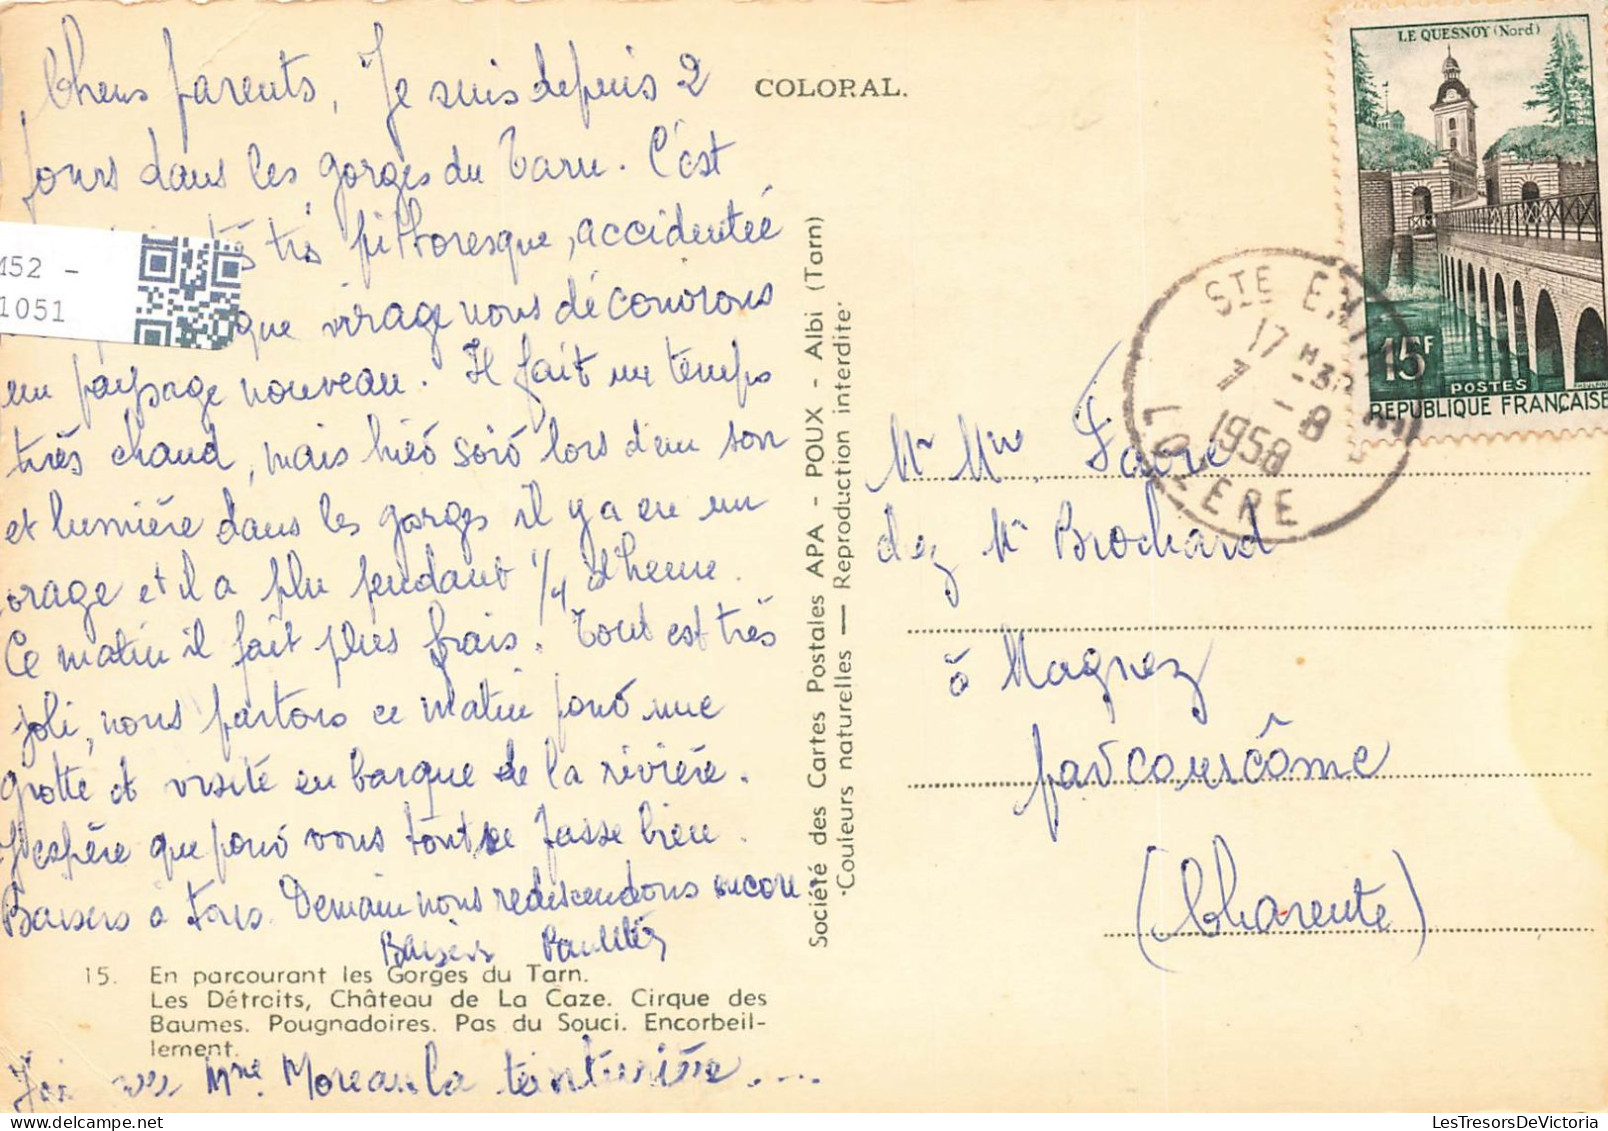 Chers parents, Je suis depuis 2
jours dans les gorges du Tarn. C'est
très pittoresque, accidentée
que virage nous découvrons
un paysage nouveau. Il fait un temps
très chaud, mais hier soir lors d'un son
et lumière dans les gorges il y a eu un
orage et il a plu pendant 1/4 d'heure.
Ce matin il fait plus frais. Tout est très
joli, nous partons ce matin pour une
grotte et visite en barque de la rivière.
J'espère que pour vous tout se passe bien.
Baisers à tous. Demain nous redescendons encore
Baisers
15. En parcourant les Gorges du Tarn.
Les Détroits, Château de La Caze. Cirque des
Baumes. Pougnadoires. Pas du Souci. Encorbeil-
lement.
J'ai vu Mme Moreau la teinturière....
M52 -
1051
COLORAL.
Société des Cartes Postales APA - POUX - Albi (Tarn)
"Couleurs naturelles — Reproduction interdite"
LE QUESNOY (Nord)
15F
POSTES
REPUBLIQUE FRANÇAISE
STE ENIMIE
17 H30
7 -8
1958
LOZERE
Mr Mme Favre
chez Mr Brochard
à Magnez
par Courcôme
(Charente)
LesTresorsDeVictoria.com